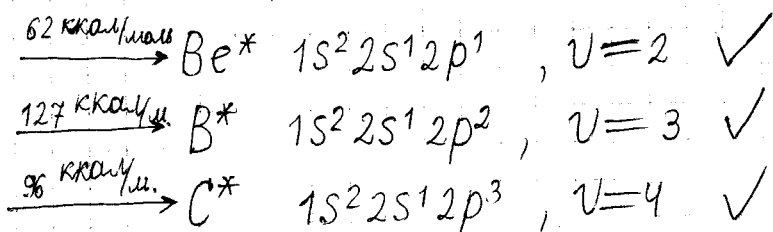 62 ккал/моль → Be* 1s² 2s¹ 2p¹ , v = 2 ✓
127 ккал/м. → B* 1s² 2s¹ 2p² , v = 3 ✓
96 ккал/м. → C* 1s² 2s¹ 2p³ , v = 4 ✓